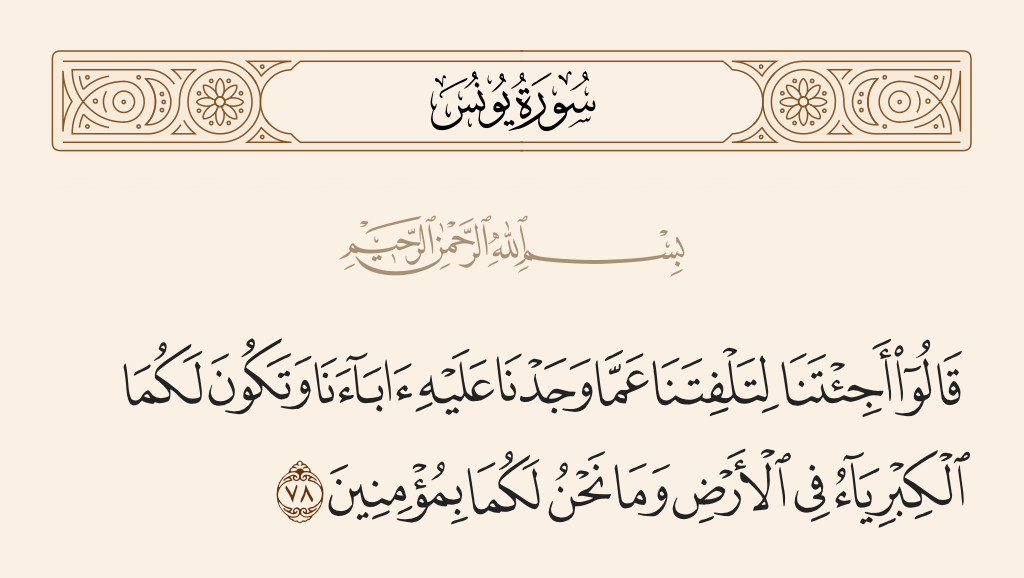 سُورَةُ يُونُسَ
بِسْمِ ٱللَّهِ ٱلرَّحْمَٰنِ ٱلرَّحِيمِ
قَالُوٓا۟ أَجِئْتَنَا لِتَلْفِتَنَا عَمَّا وَجَدْنَا عَلَيْهِ ءَابَآءَنَا وَتَكُونَ لَكُمَا
ٱلْكِبْرِيَآءُ فِى ٱلْأَرْضِ وَمَا نَحْنُ لَكُمَا بِمُؤْمِنِينَ ٧٨